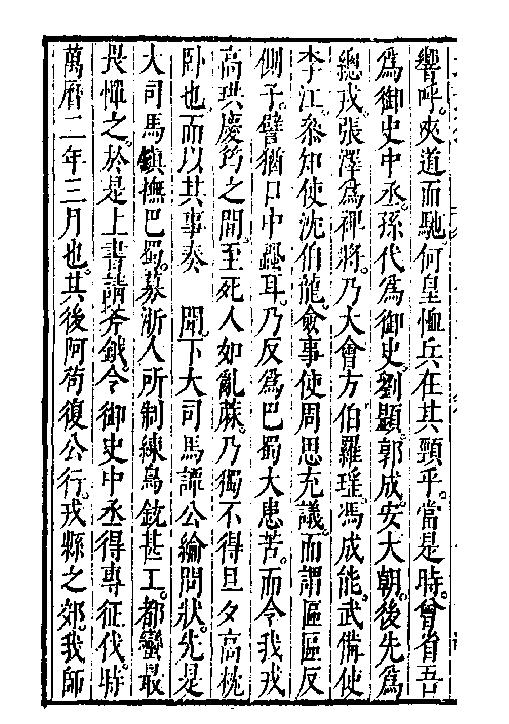 響呼。夾道而馳。何皇恤兵在其頸乎。當是時。曾省吾
爲御史中丞。孫代爲御史。劉顯。郭成。安大朝。後先爲
總戎。張澤爲裨將。乃大會方伯羅瑶。馮成能。武備使
李江。叅知使沈伯龍。僉事使周思充議。而謂區區反
側子。譬猶口中蝨耳。乃反爲巴蜀大患苦。而令我戎
高珙慶筠之間。至死人如亂蔴。乃獨不得旦夕高枕
卧也而以其事奏　聞。下大司馬譚公綸問狀。先是
大司馬鎮撫巴蜀。募浙人所制練鳥銃甚工。都蠻最
畏憚之。於是上書請斧鉞。令御史中丞得專征伐。時
萬曆二年三月也。其後阿苟復公行。戎縣之郊。我師